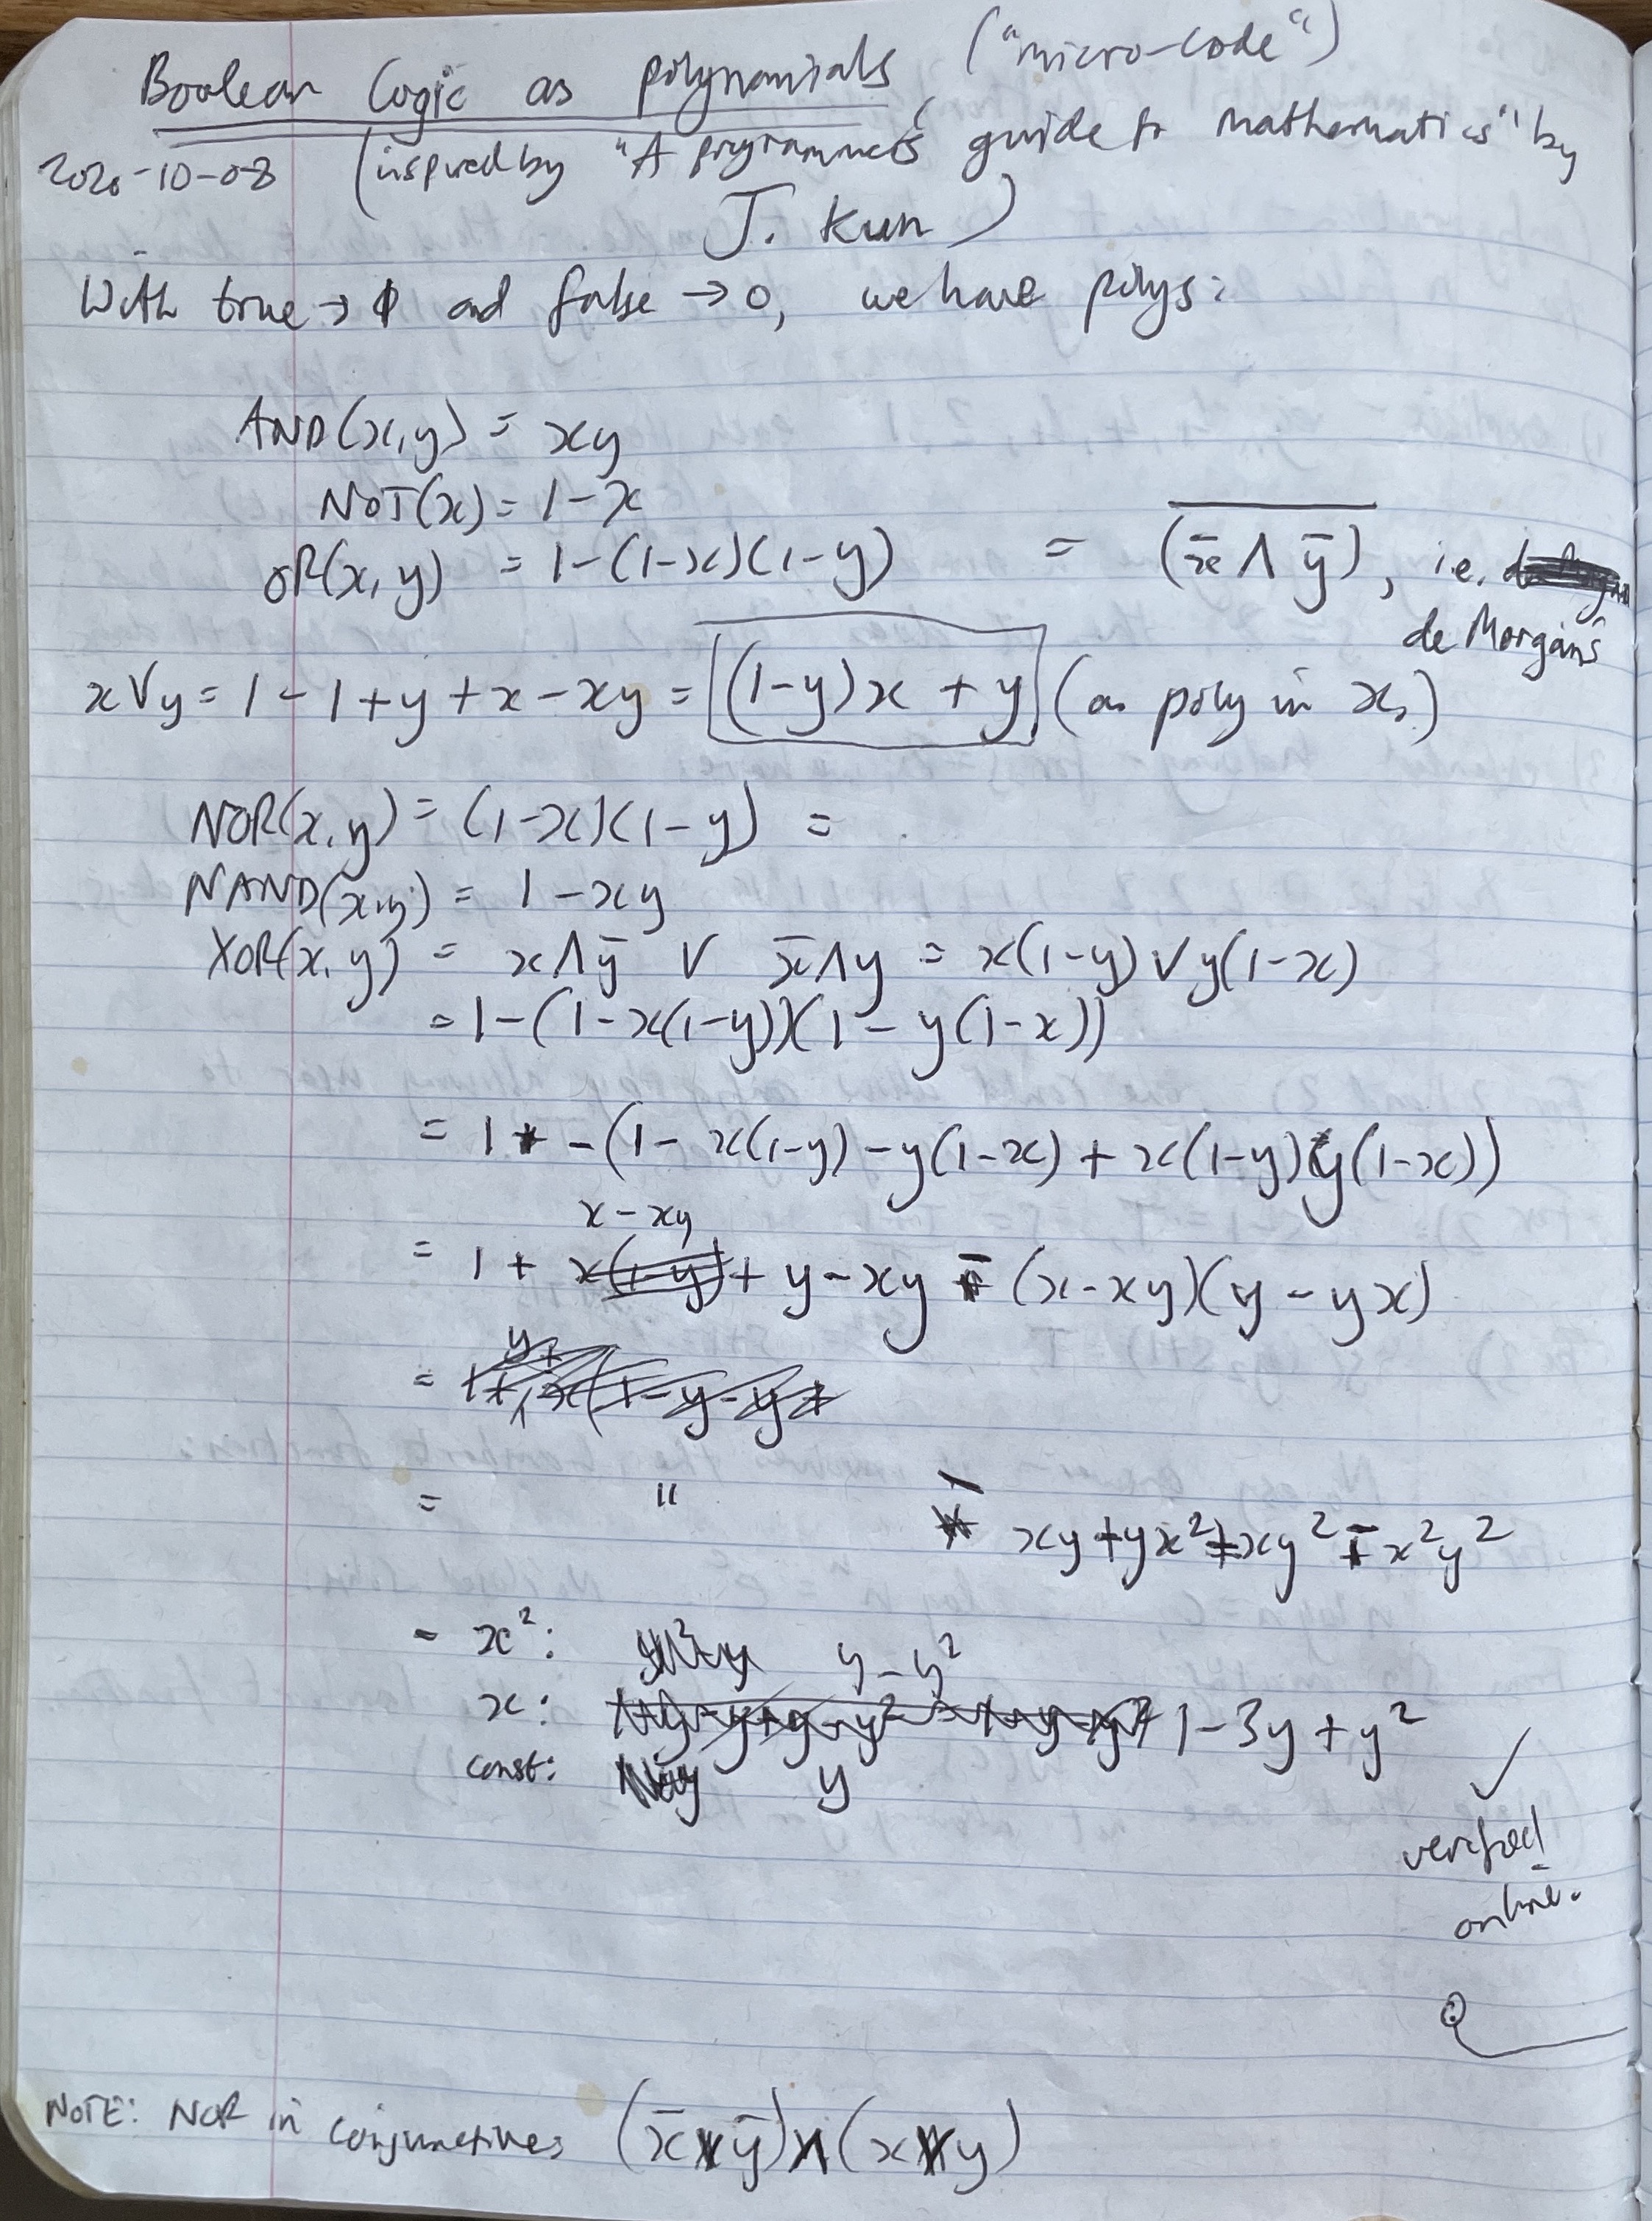 Boolean Logic as polynomials ("micro-code")
2020-10-08 (inspired by "A programmer's guide to mathematics" by
J. Kun)
With true → 1 and false → 0, we have polys:
AND(x,y) = xy
NOT(x) = 1-x
OR(x,y) = 1-(1-x)(1-y) = \overline{(x̄ ∧ ȳ)}, i.e.
de Morgan's
x∨y = 1-1+y+x-xy = (1-y)x + y (as poly in x.)
NOR(x,y) = (1-x)(1-y) =
NAND(x,y) = 1-xy
XOR(x,y) = x∧ȳ ∨ x̄∧y = x(1-y)∨y(1-x)
= 1-(1-x(1-y))(1-y(1-x))
= 1 -(1-x(1-y)-y(1-x)+x(1-y)y(1-x))
x-xy
= 1 + x(1-y) + y-xy - (x-xy)(y-yx)
=
= " - xy+yx²+xy²-x²y²
= x²: y-y²
x: 1-3y+y²
const: y
✓
verified
online.
NOTE: NOR in conjunctives (x̄ ∨ ȳ)∧(x ∨ y)